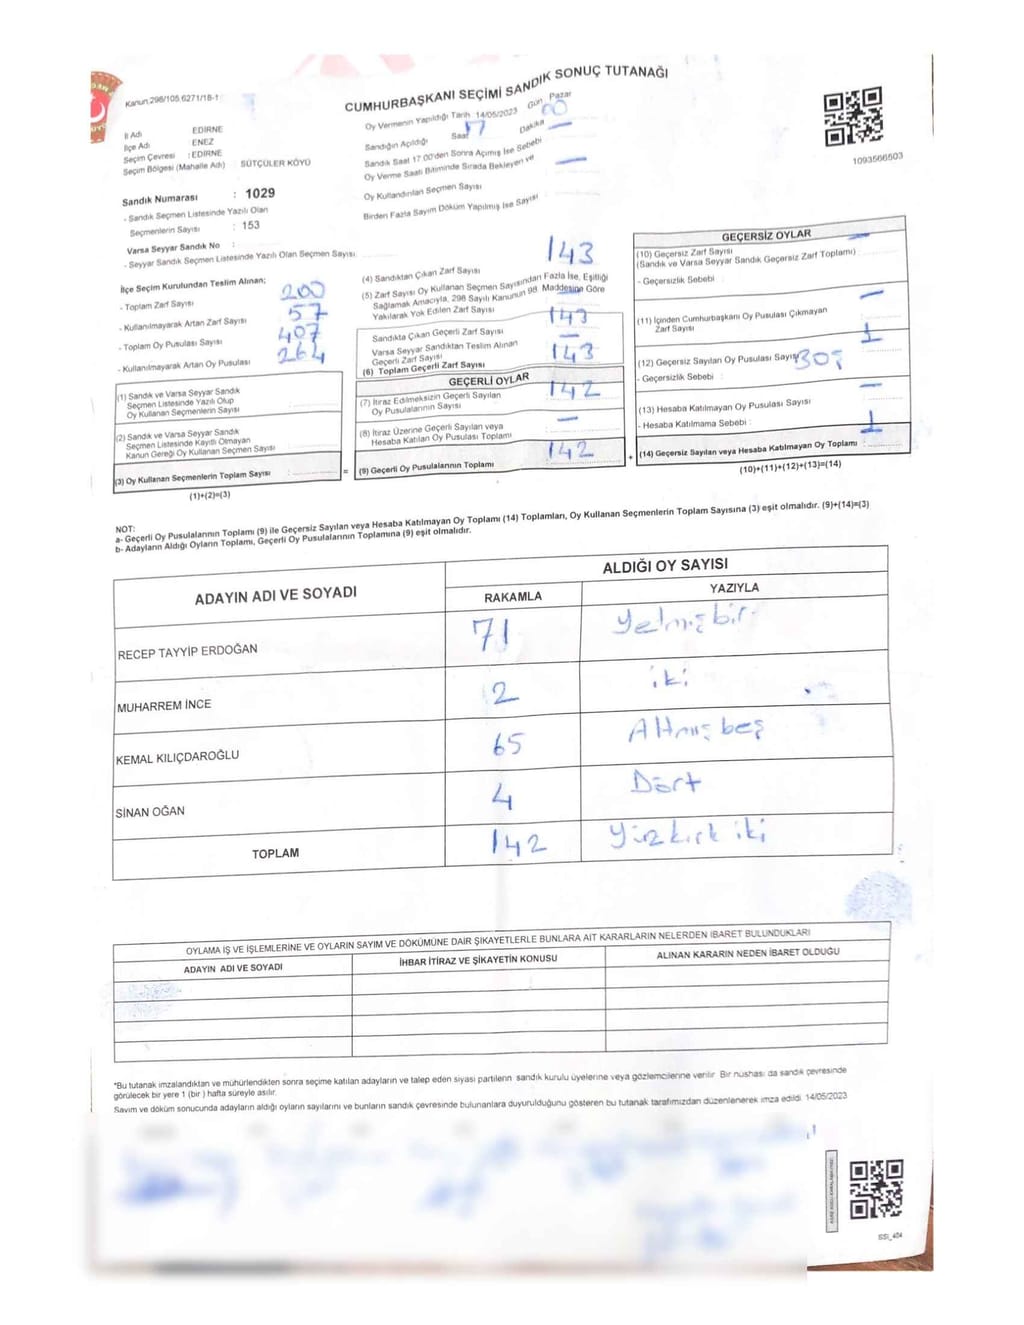 Kanun:298/105,6271/18-1
CUMHURBAŞKANI SEÇİMİ SANDIK SONUÇ TUTANAĞI
İl Adı EDİRNE
İlçe Adı ENEZ
Seçim Çevresi : EDİRNE
Seçim Bölgesi (Mahalle Adı) : SÜTÇÜLER KÖYÜ
Sandık Numarası : 1029
- Sandık Seçmen Listesinde Yazılı Olan
Seçmenlerin Sayısı : 153
Varsa Seyyar Sandık No :
- Seyyar Sandık Listesinde Yazılı Olan Seçmen Sayısı:
Oy Vermenin Yapıldığı Tarih 14/05/2023 Gün Pazar
Sandığın Açıldığı Saat 17 Dakika 00
Sandık Saat 17.00'den Sonra Açımış İse Sebebi —
Oy Verme Saati Bitiminde Sırada Bekleyen ve
Oy Kullandırılan Seçmen Sayısı —
Birden Fazla Sayım Döküm Yapılmış İse Sayısı
1093566503
İlçe Seçim Kurulundan Teslim Alınan;
- Toplam Zarf Sayısı 200
- Kullanılmayarak Artan Zarf Sayısı 57
- Toplam Oy Pusulası Sayısı 407
- Kullanılmayarak Artan Oy Pusulası 264
(1) Sandık ve Varsa Seyyar Sandık
Seçmen Listesinde Yazılı Olup
Oy Kullanan Seçmenlerin Sayısı
(2) Sandık ve Varsa Seyyar Sandık
Seçmen Listesinde Kayıtlı Olmayan
Kanun Gereği Oy Kullanan Seçmen Sayısı
(3) Oy Kullanan Seçmenlerin Toplam Sayısı : =
(1)+(2)=(3)
(4) Sandıktan Çıkan Zarf Sayısı 143
(5) Zarf Sayısı Oy Kullanan Seçmen Sayısından Fazla İse, Eşitliği
Sağlamak Amacıyla, 298 Sayılı Kanunun 98. Maddesine Göre
Yakılarak Yok Edilen Zarf Sayısı —
Sandıkta Çıkan Geçerli Zarf Sayısı 143
Varsa Seyyar Sandıktan Teslim Alınan
Geçerli Zarf Sayısı —
(6) Toplam Geçerli Zarf Sayısı 143
GEÇERLİ OYLAR
(7) İtiraz Edilmeksizin Geçerli Sayılan
Oy Pusulalarının Sayısı 142
(8) İtiraz Üzerine Geçerli Sayılan veya
Hesaba Katılan Oy Pusulası Toplamı —
(9) Geçerli Oy Pusulalarının Toplamı 142 +
GEÇERSİZ OYLAR
(10) Geçersiz Zarf Sayısı
(Sandık ve Varsa Seyyar Sandık Geçersiz Zarf Toplamı) —
- Geçersizlik Sebebi :
(11) İçinden Cumhurbaşkanı Oy Pusulası Çıkmayan
Zarf Sayısı —
(12) Geçersiz Sayılan Oy Pusulası Sayısı 1
- Geçersizlik Sebebi :
(13) Hesaba Katılmayan Oy Pusulası Sayısı —
- Hesaba Katılmama Sebebi :
(14) Geçersiz Sayılan veya Hesaba Katılmayan Oy Toplamı : 1
(10)+(11)+(12)+(13)=(14)
NOT:
a- Geçerli Oy Pusulalarının Toplamı (9) ile Geçersiz Sayılan veya Hesaba Katılmayan Oy Toplamı (14) Toplamları, Oy Kullanan Seçmenlerin Toplam Sayısına (3) eşit olmalıdır. (9)+(14)=(3)
b- Adayların Aldığı Oyların Toplamı, Geçerli Oy Pusulalarının Toplamına (9) eşit olmalıdır.
ADAYIN ADI VE SOYADI ALDIĞI OY SAYISI
RAKAMLA YAZIYLA
RECEP TAYYİP ERDOĞAN 71 Yetmişbir
MUHARREM İNCE 2 iki
KEMAL KILIÇDAROĞLU 65 Altmışbeş
SİNAN OĞAN 4 Dört
TOPLAM 142 Yüzkırk iki
OYLAMA İŞ VE İŞLEMLERİNE VE OYLARIN SAYIM VE DÖKÜMÜNE DAİR ŞİKAYETLERLE BUNLARA AİT KARARLARIN NELERDEN İBARET BULUNDUKLARI
ADAYIN ADI VE SOYADI İHBAR İTİRAZ VE ŞİKAYETİN KONUSU ALINAN KARARIN NEDEN İBARET OLDUĞU
*Bu tutanak imzalandıktan ve mühürlendikten sonra seçime katılan adayların ve talep eden siyasi partilerin sandık kurulu üyelerine veya gözlemcilerine verilir. Bir nüshası da sandık çevresinde
görülecek bir yere 1 (bir ) hafta süreyle asılır.
Sayım ve döküm sonucunda adayların aldığı oyların sayılarını ve bunların sandık çevresinde bulunanlara duyurulduğunu gösteren bu tutanak tarafımızdan düzenlenerek imza edildi. 14/05/2023
SSI_404